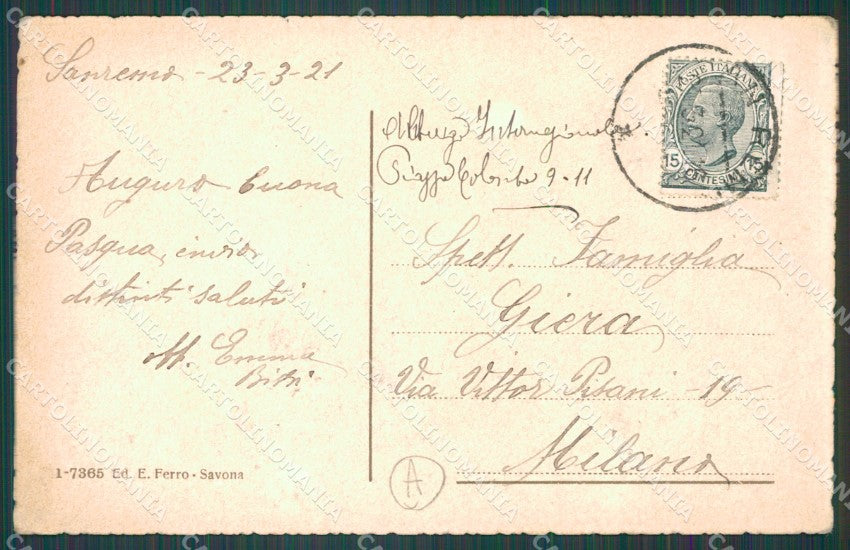 Sanremo - 23-3-21
Auguro buona
Pasqua, invio
distinti saluti
Aff. Emma
1-7365 Ed. E. Ferro - Savona
Albergo Internazionale.
Piazza Colombo 9-11
POSTE ITALIANE
15 15
CENTESIMI
Spett. Famiglia
Giera
Via Vittor Pisani - 19 -
Milano
A
CARTOLINOMANIA